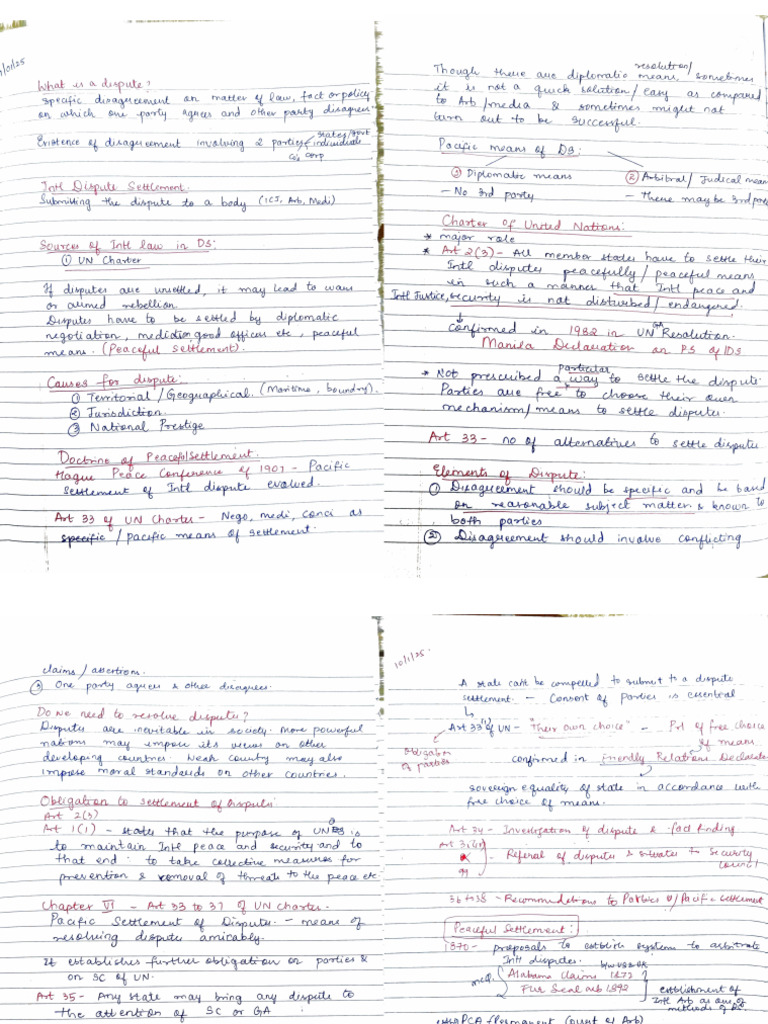 /01/25
What is a dispute?
Specific disagreement on matter of law, fact or policy
on which one party agrees and other party disagrees.
Existence of disagreement involving 2 parties states/govt
individuals
corp
Intl Dispute Settlement.
Submitting the dispute to a body (ICJ, Arb, Medi)
Sources of Intl law in DS:
① UN Charter
If disputes are unsettled, it may lead to wars
or armed rebellion.
Disputes have to be settled by diplomatic
negotiation, mediation, good offices etc, peaceful
means. (Peaceful settlement).
Causes for dispute:
① Territorial / Geographical. (Maritime, boundry).
② Jurisdiction.
③ National Prestige
Doctrine of Peaceful Settlement.
Hague Peace Conference of 1907 - Pacific
settlement of Intl dispute evolved.
Art 33 of UN Charter - Nego, medi, conci as
specific / pacific means of settlement.
Though there are diplomatic means, resolution/ sometimes
it is not a quick solution / easy as compared
to Arb / media & sometimes might not
turn out to be successful.
Pacific means of DS:
① Diplomatic means
② Arbitral / Judical mean
- No 3rd party
- There may be 3rd par
Charter of United Nations:
* major role
* Art 2(3) - All member states have to settle their
Intl disputes peacefully / peaceful means
in such a manner that Intl peace and
Intl Justice, security is not disturbed / endangered.
↓
confirmed in 1982 in UN GA Resolution.
Manila Declaration on PS of IDS
* Not prescribed a particular way to settle the dispute.
Parties are free to choose their own
mechanism / means to settle disputes.
Art 33 - no of alternatives to settle dispute
Elements of Dispute:
① Disagreement should be specific and be based
on reasonable subject matter & known to
both parties
② Disagreement should involve conflicting
claims / assertions.
③ One party agrees & other disagrees.
Do we need to resolve dispute?
Disputes are inevitable in society. More powerful
nations may impose its views on other
developing countries. Weak country may also
impose moral standards on other countries.
Obligation to settlement of disputes
Art 2(3)
Art 1(1) - states that the purpose of UN is
to maintain Intl peace and security and to
that end : to take collective measures for
prevention & removal of threats to the peace etc.
Chapter VI - Art 33 to 37 of UN Charter.
Pacific Settlement of Disputes. - means of
resolving dispute amicably.
It establishes further obligation on parties &
on SC of UN.
Art 35 - Any state may bring any dispute to
the attention of SC or GA
10/1/25.
A state can't be compelled to submit to a dispute
settlement. - Consent of parties is essential
↳ Art 33 of UN - "Their own choice" - Prl of free choice
of means.
Obligation
of parties
confirmed in Friendly Relations Declarate
sovereign equality of state in accordance with
free choice of means.
Art 34 - Investigation of dispute & fact finding
- Referral of disputes & to Security
council
36 to 38 - Recommendations to Parties Pacific settlement
Peaceful Settlement:
1870 - proposals to establish system to arbitrate
Intl disputes.
b/w US & UK
Alabama claims 1872
Fur Seal arb 1892
establishment of
Intl Arb as one of
methods of
PCA (Permanent Court of Arb)